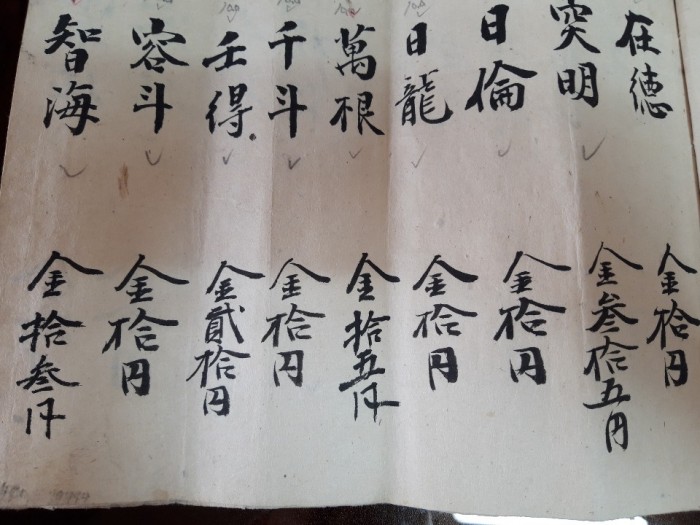 在德 金拾円
奕明 金叁拾五円
日倫 金拾円
日龍 金拾円
萬根 金拾五円
千斗 金拾円
壬得 金貳拾円
容斗 金拾円
智海 金拾叁円